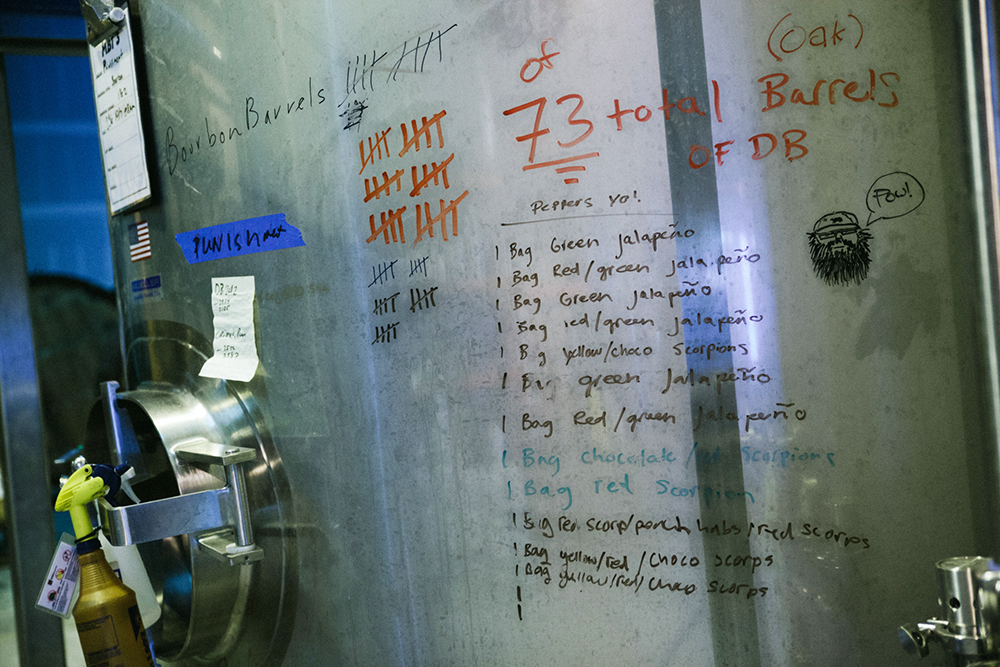 MBPS
Bourbon Barrels
of
73 total Barrels
(Oak)
OF DB
PUNISHMENT
Peppers Yo!
POW!
1 Bag Green jalapeño
1 Bag Red/green jalapeño
1 Bag Green jalapeño
1 Bag red/green jalapeño
1 Bag yellow/choco Scorpions
1 Bag green Jalapeño
1 Bag Red/green jalapeño
1 Bag chocolate / Scorpions
1 Bag red Scorpion
1 Bag red scorp/ habs/red scorps
1 Bag yellow/red/choco scorps
1 Bag yellow/red/choco scorps
1
1